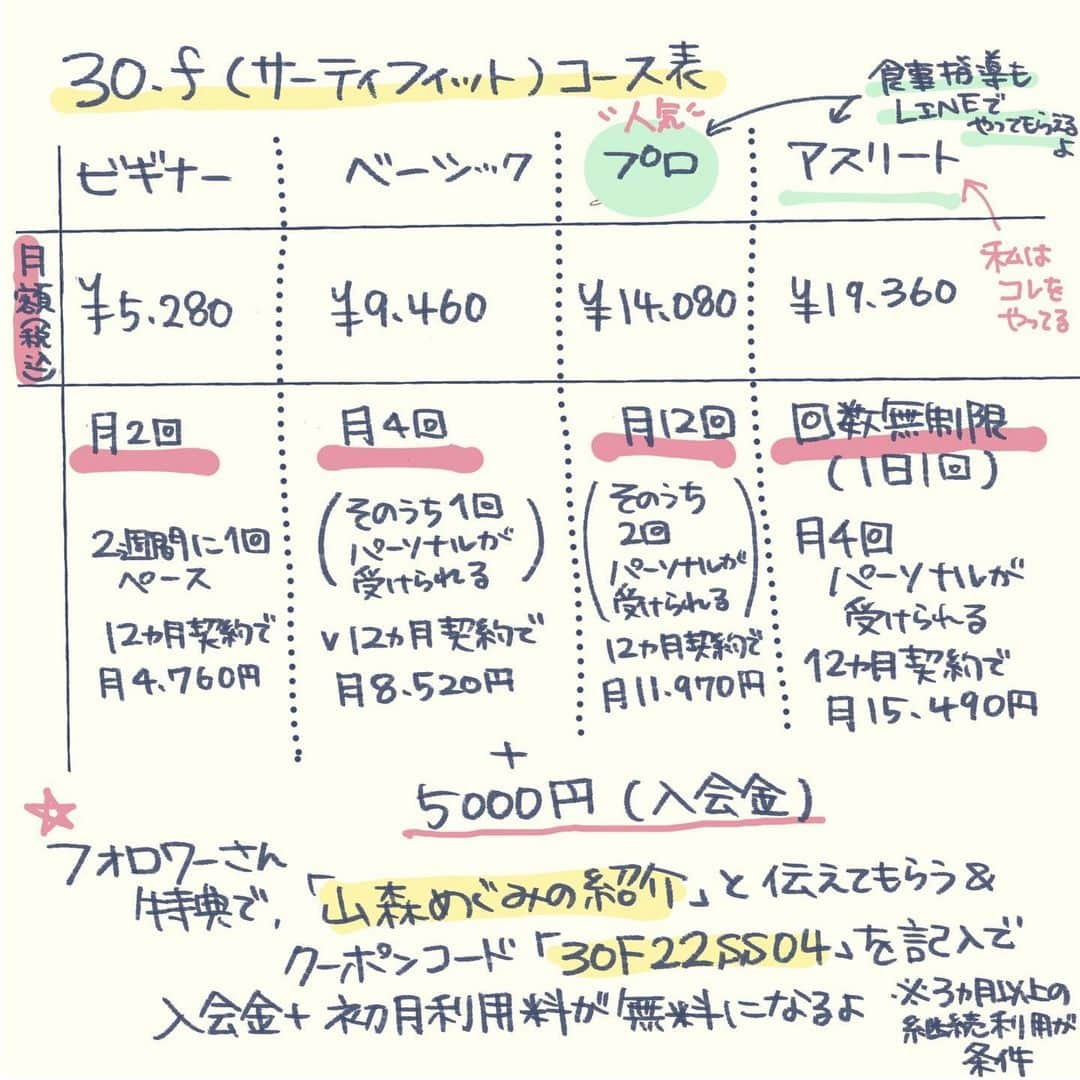 30.f(サーティフィット)コース表
食事指導も
LINEで
やってもらえる
よ
"人気"
ビギナー
ベーシック
プロ
アスリート
私は
コレを
やってる
月額(税込)
¥5.280
¥9.460
¥14.080
¥19.360
月2回
2週間に1回
ペース
12カ月契約で
月4.760円
月4回
(そのうち1回
パーソナルが
受けられる)
v12カ月契約で
月8.520円
月12回
(そのうち
2回
パーソナルが
受けられる)
12カ月契約で
月11.970円
回数無制限
(1日1回)
月4回
パーソナルが
受けられる
12カ月契約で
月15.490円
+
5000円(入会金)
☆
フォロワーさん
特典で,「山森めぐみの紹介」と伝えてもらう&
クーポンコード「30F22SS04」を記入で
入会金+初月利用料が無料になるよ
.※3カ月以上の
継続利用が
条件